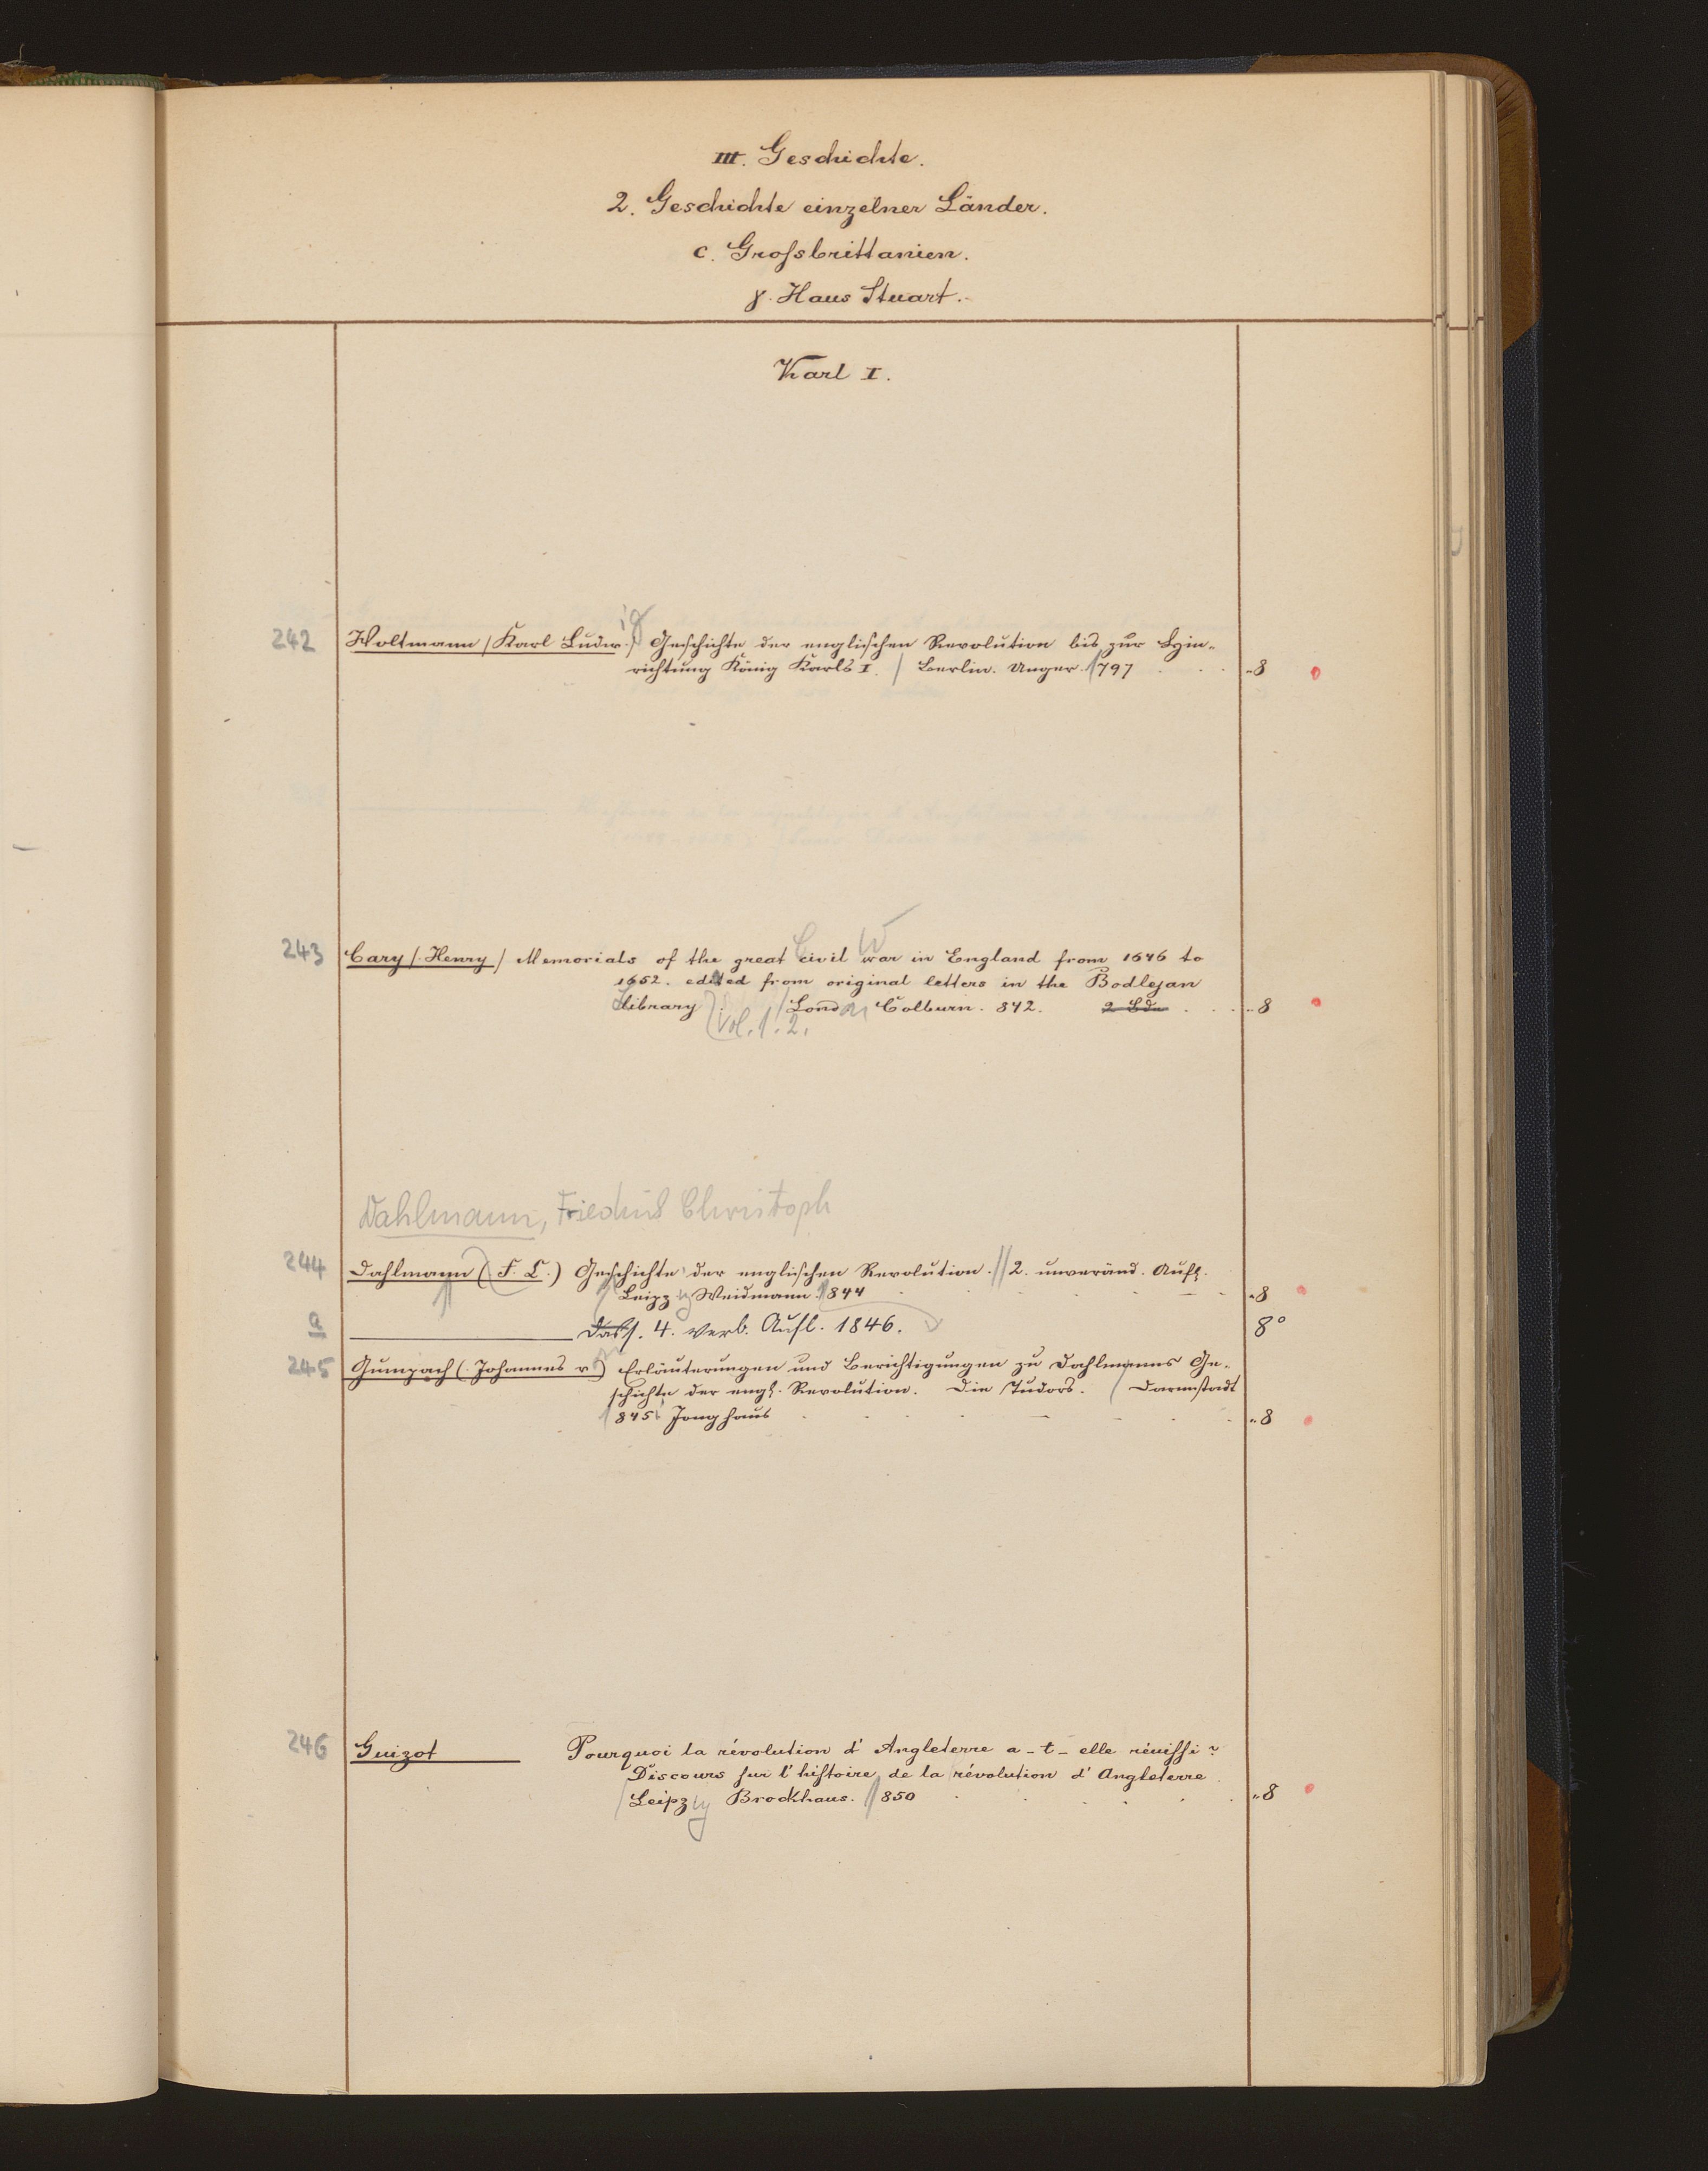 III. Geschichte.
2. Geschichte einzelner Länder.
c. Grossbrittanien.
γ. Haus Stuart.
Karl I.
242 Woltmann (Karl Ludw.) Geschichte der englischen Revolution bis zur Hin-
ig
richtung König Karls I. / Berlin. Unger. 1797 8
243 Cary (Henry) Memorials of the great Civil War in England from 1646 to
1652. edited from original letters in the Bodlejan
Library London Colburn. 842. 2 Bde 8
Vol. 1. 2.
Dahlmann, Friedrich Christoph
244 Dahlmann (F. C.) Geschichte der englischen Revolution. // 2. unveränd. Aufl.
Leipzig Weidmann. 1844 8
a Dass. 4. verb. Aufl. 1846. 8°
245 Gumpach (Johannes v.) Erläuterungen und Berichtigungen zu Dahlmanns Ge-
schichte der engl. Revolution. Die Tudors. Darmstadt
1845 Jonghaus 8
246 Guizot Pourquoi la révolution d'Angleterre a-t-elle réussi?
Discours sur l'histoire de la révolution d'Angleterre
Leipzig Brockhaus. 1850 8